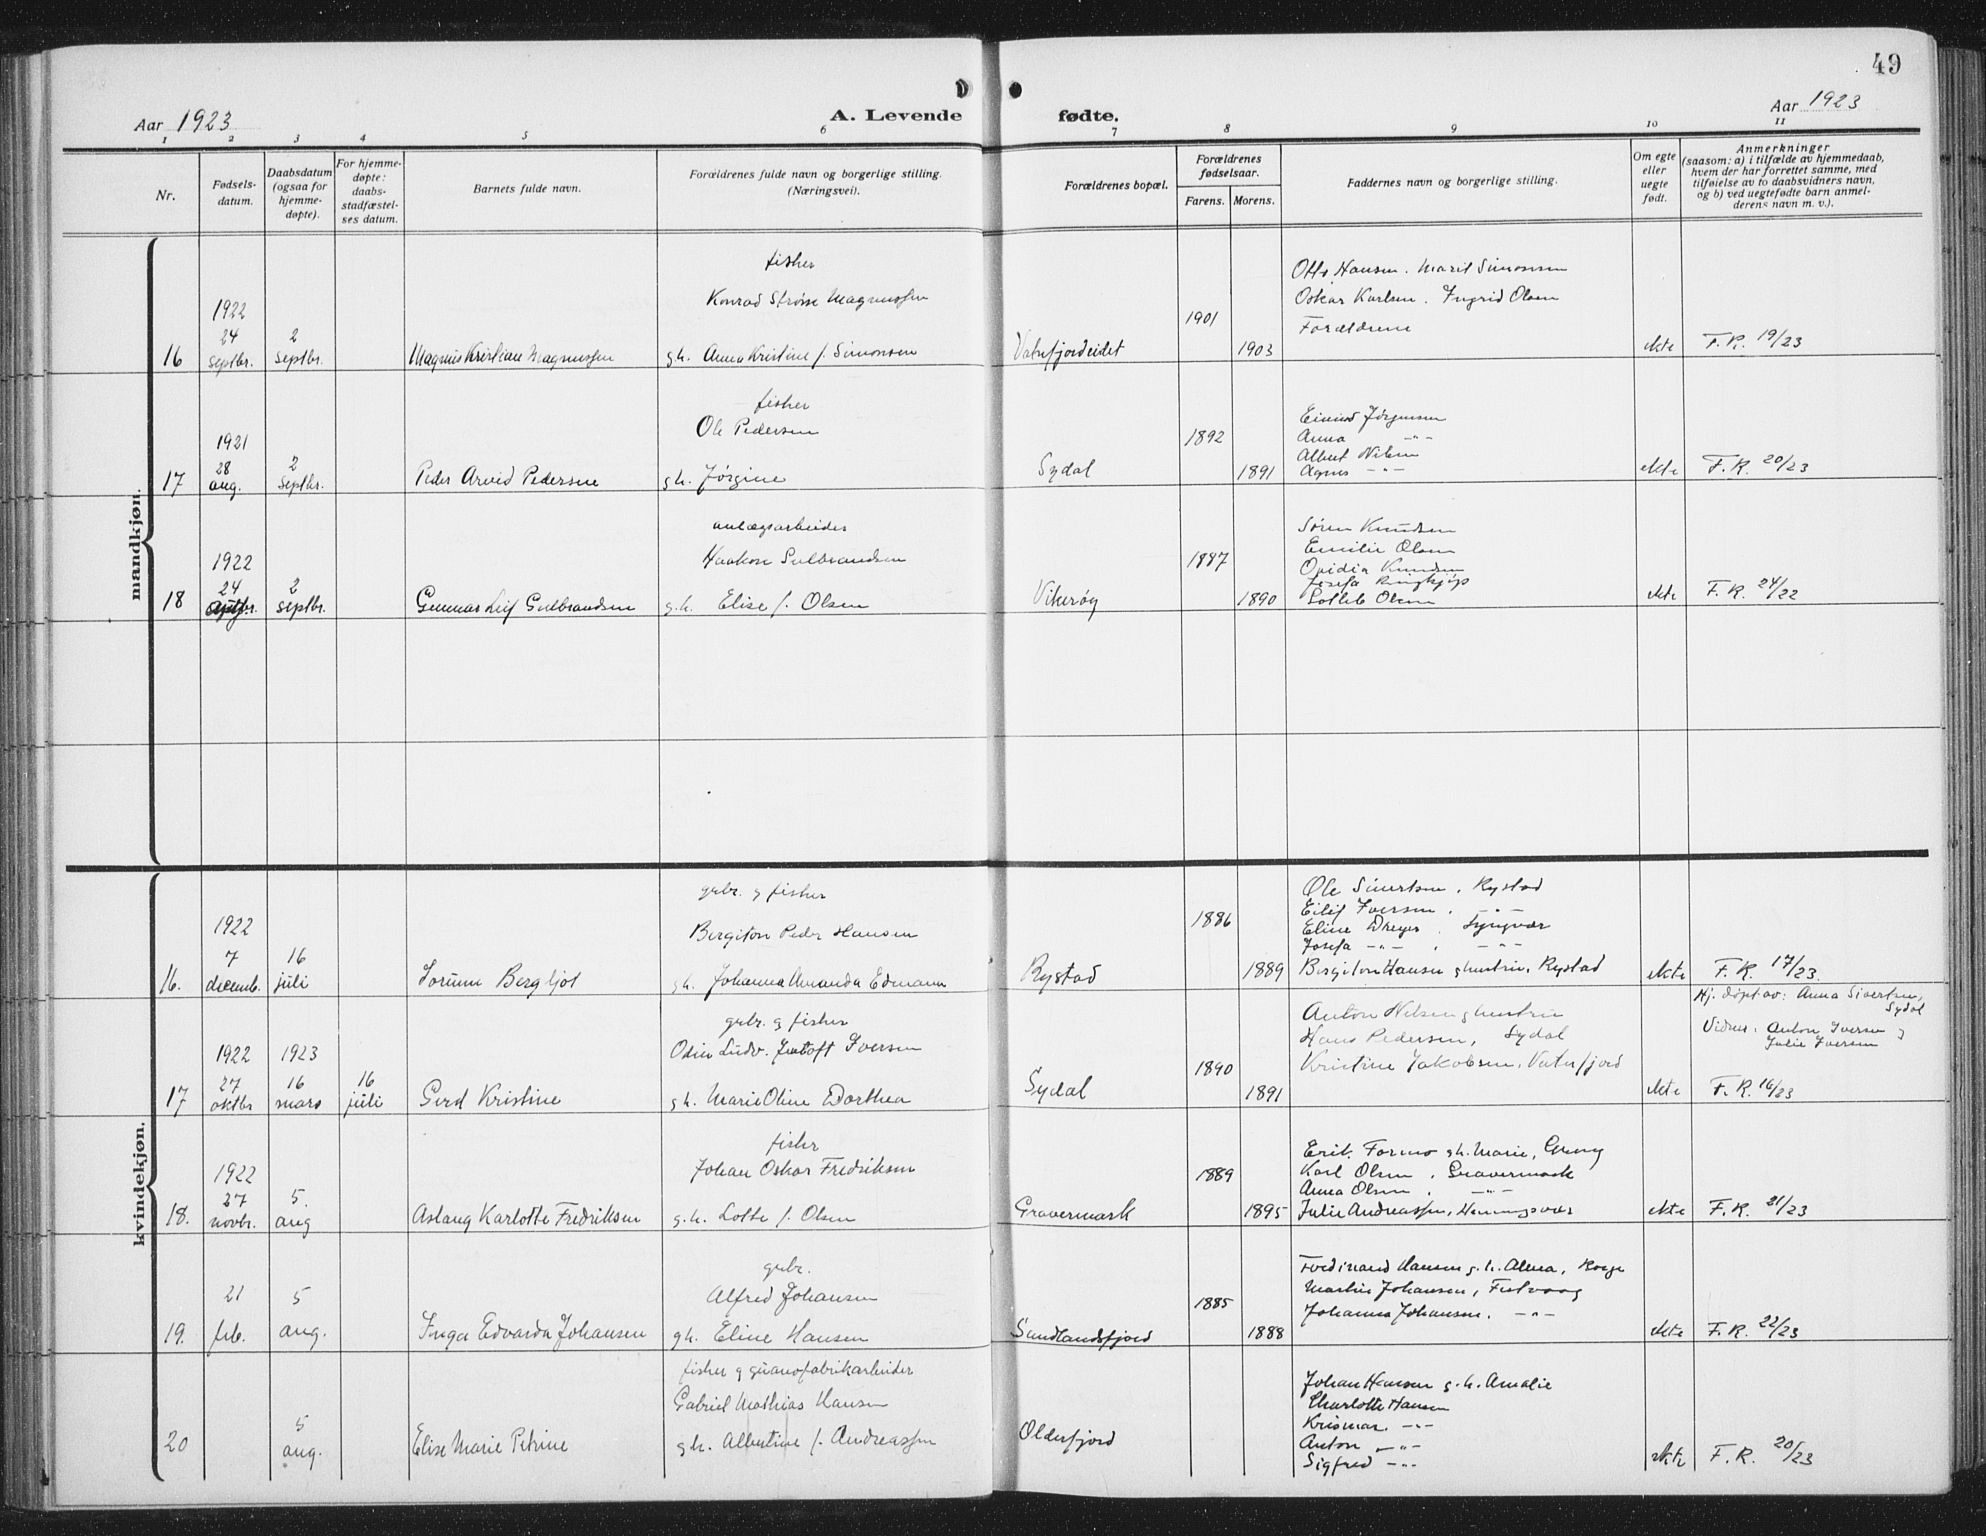 49
Aar 1923
A. Levende fødte.
Aar 1923
1 2 3 4 5 6 7 8 9 10 11
Nr.
Fødsels-
datum.
Daabsdatum
(ogsaa for
hjemme-
døpte).
For hjemme-
døpte:
daabs-
stadfæstel-
ses datum.
Barnets fulde navn.
Forældrenes fulde navn og borgerlige stilling.
(Næringsvei).
Forældrenes bopæl.
Forældrenes
fødselsaar.
Farens. Morens.
Faddernes navn og borgerlige stilling.
Om egte
eller
uegte
født.
Anmerkninger
(saasom: a) i tilfælde av hjemmedaab,
hvem der har forrettet samme, med
tilføielse av to daabsvidners navn,
og b) ved uegtefødte barn anmel-
derens navn m. v.).
mandkjøn.
16
1922
24
septbr.
2
septbr.
Magnus Kristian Magnussen
fisker
Konrad Strøm Magnussen
g.h. Anna Kristine f. Simonsen
Vatnfjordeidet
1901
1903
Otto Hansen. Marit Simonsen
Oskar Karlsen. Ingrid Olsen
Forældrene
ekte
F.R. 19/23
17
1921
28
aug.
2
septbr.
Peder Arvid Pedersen
fisker
Ole Pedersen
g.h. Jørgine
Sydal
1892
1891
Eivind Jørgensen
Anna -"-
Albert Nilsen
Agnes -"-
ekte
F.R. 20/23
18
1922
24
septbr.
2
septbr.
Gunnar Leif Gulbrandsen
anlægsarbeider
Haakon Gulbrandsen
g.h. Elise f. Olsen
Vikerøy
1887
1890
Søren Knudsen
Emilie Olsen
Ovidia Knudsen
Josefa Ringkjøp
Gotleb Olsen
ekte
F.R. 24/22
kvindekjøn.
16.
1922
7
decemb.
16
juli
Jorunn Bergljot
grbr. g fisker
Bergiton Peder Hansen
g.h. Johanna Amanda Edmann
Rystad
1886
1889
Ole Sivertsen, Rystad
Eilif Iversen. -"-
Eline Dreyer. Lyngvær
Josefa -"- . -"-
Bergiton Hansen g hustru, Rystad
ekte
F.R. 17/23.
17
1922
27
oktbr
1923
16
mars
16
juli
Gerd Kristine
grbr. g fisker
Odin Ludv. Jentoft Iversen
g.h. Marie Oline Dorthea
Sydal
1890
1891
Anton Nilsen g hustru
Hans Pedersen, Sydal
Kristine Jakobsen, Vatnfjord
ekte
Hj. døpt av: Anna Sivertsen,
Sydal
Vidner: Anton Iversen g
Julie Iversen
F.R. 16/23
18.
1922
27
novbr.
5
aug
Aslaug Karlotte Fredriksen
fisker
Johan Oskar Fredriksen
g.h. Lotte f. Olsen
Gravermark
1889
1895
Erik Formo g.h. Marie,
Karl Olsen, Gravermark
Anna Olsen, -"-
Julie Andreassen, Henningsvær
ekte
F.R. 21/23
19.
21
feb.
5
aug.
Inga Edvarda Johansen
grbr.
Alfred Johansen
g.h. Eline Hansen
Sundlandsfjord
1885
1888
Ferdinand Hansen g.h. Alma,
Martin Johansen, Festvaag
Johanna Johansen. -"-
ekte
F.R. 22/23
20
5
aug.
Elise Marie Petrine
fisker g guanofabrikarbeider
Gabriel Mathias Hansen
g.h. Albertine f. Andreassen
Olderfjord
Johan Hansen g.h. Amalie
Charlotte Hansen
Krismar -"-
Anton -"-
Sigfred -"-
ekte
F.R. 20/23